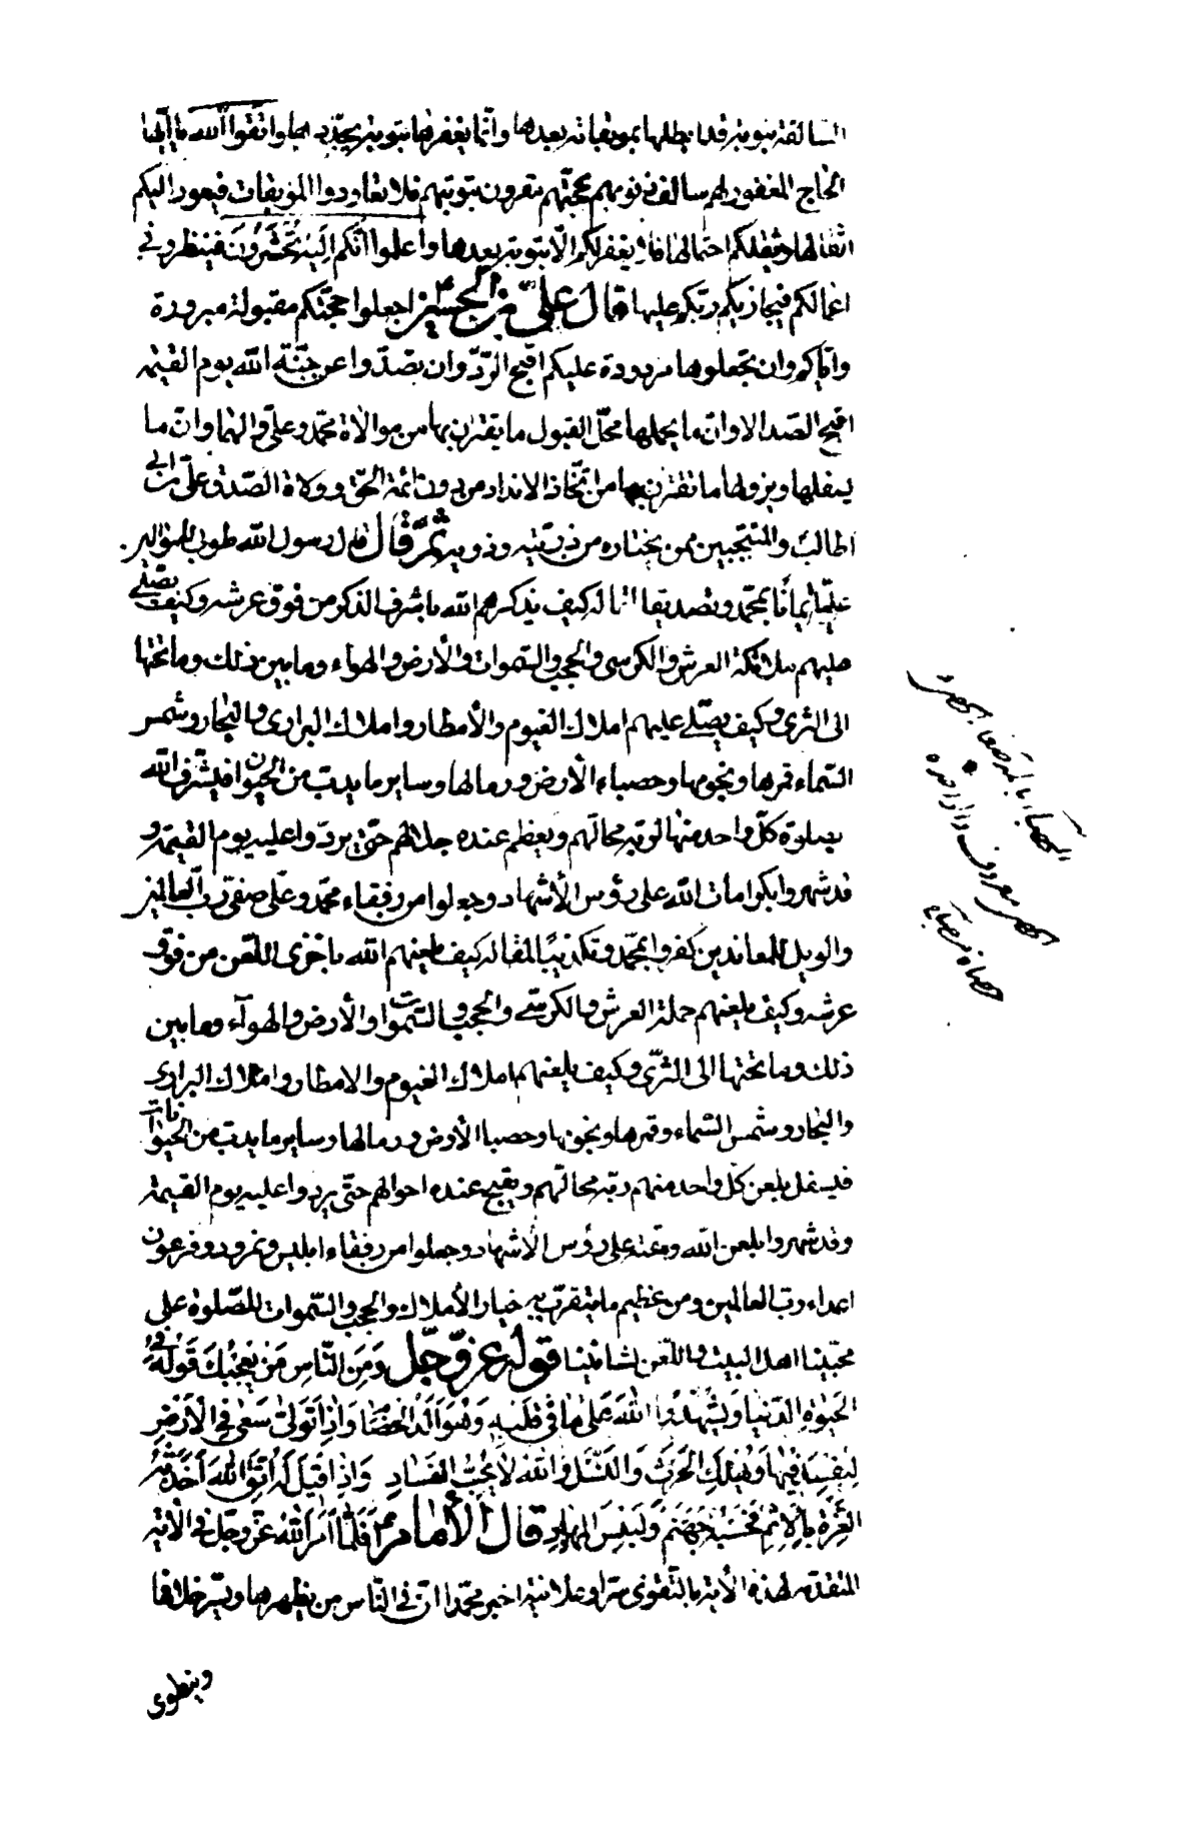 السالفة بتوبته قد ابطلها بموبقاته بعدها وانما يغفرها بتوبة يجدد لها واتقوا الله يا ايها
الحاج المغفور لهم سالف ذنوبهم بحجتهم المقرون بتوبتهم فلا تعاودوا الموبقات فيعود اليكم
اثقالها ويثقلكم احتمالها فلا يغفر لكم الّا بتوبة بعدها واعلموا انّكم اليه تحشرون فينظر في
اعمالكم فيجازيكم ربّكم عليها قال علىّ بن الحسين اجعلوا حجّتكم مقبولة مبرورة
واياكم وان تجعلوها مردودة عليكم اقبح الردّ وان تصدّوا عن جنّة الله يوم القيمة
اقبح الصّد الا وانّ ما يحلها محلّ القبول ما يقترن بها من موالاة محمّد وعلىّ والهما وانّ ما
يسفلها ويزولها ما تقترن بها من اتّخاذ الانداد من دون ائمة الحقّ وولاة الصّدق علىّ بن ابى
طالب والمنتجبين ممن يختاره من ذريته وذويه ثمّ قال قال رسول الله طوبى للموالين
عليّا ايمانًا بمحمّد وتصديقا لمقاله كيف يذكرهم الله باشرف الذكر من فوق عرشه وكيف يصلّى
عليهم ملائكة العرش والكرسى والحجب والسّموات والأرض والهواء وما بين ذلك وما تحتها
الى الثرى وكيف يصلّى عليهم املاك الغيوم والأمطار واملاك البرارى والبحار وشمس
السّماء قمرها ونجومها وحصباء الأرض ورمالها وساير ما يدبّ من الحيوان فيشرّف الله
بصلوة كلّ واحد منها لديه محالّهم ويعظم عنده جلالهم حتّى يردّوا عليه يوم القيمة و
قد شهروا بكرامات الله على رؤس الأشهاد وجعلوا من رفقاء محمّد وعلىّ صفىّ ربّ العالمين
والويل للمعاندين كفروا بمحمّد وتكذيبًا لمقاله كيف يلعنهم الله باخزى اللعن من فوق
عرشه وكيف يلعنهم حملة العرش والكرسّى والحجب والسّموات والأرض والهوآء وما بين
ذلك وما تحتها الى الثرّى وكيف يلعنهم املاك الغيوم والامطار واملاك البرارى
والبحار وشمس السّماء وقمرها ونجومها وحصبا الأرض ورمالها وساير ما يدبّ من الحيوانات
فيسفل بلعن كلّ واحد منهم لديه محالّهم ويقبح عنده احوالهم حتّى يردوا عليه يوم القيمة
وقد شهروا بلعن الله ومقته على رؤس الاشهاد وجعلوا من رفقاء ابليس ونمرود وفرعون
اعداء ربّ العالمين ومن عظيم ما يتقرّب به خيار الأملاك والحجب والسّموات للصّلوة على
محبّينا اهل البيت واللّعن لشانئينا قوله عزّ وجّل وَمِنَ النّاسِ مَنْ يُعْجِبُكَ قَوْلُهُ فِى
الحَيٰوةِ الدّنْيا وَيُشْهِدُ اللهَ عَلىٰ مٰا فى قَلْبِهِ وَهُوَ اَلَدُّ الْخِصٰامِ وَاِذا تَوَلّىٰ سَعىٰ فِى الْاَرْضِ
لِيُفْسِدَ فِيهٰا وَيُهْلِكَ الْحَرْثَ وَالنَّسْلَ وَاللهُ لٰا يُحِبُّ الْفَسٰادِ وَاِذا قِيلَ لَهُ اتَّقِ اللهَ اَخَذَتْهُ
الْعِزَّةُ بِالْاِثْمِ فَحَسْبُهُ جَهَنَّمُ وَلَبِئْسَ الْمِهٰاد قال الأمام فَلَمّا اَمَرَ اللهُ عَزّ وجلّ فى الآية
المتقدّمة لهذه الأية بالتّقوى سرّا وعلانية اخبر محمّدا انّ فى النّاس من يظهرها ويسرّ خلافها
وينطوى